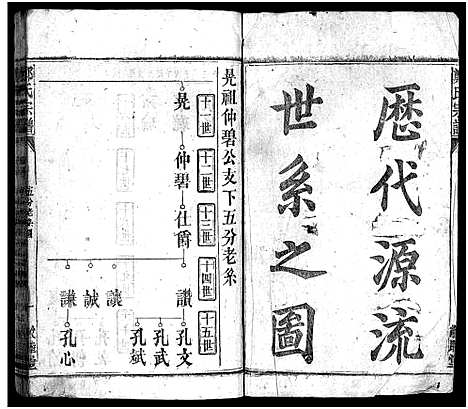 歷代源流
世系之圖
晃祖仲碧公支下五分老系
十一世 十二世 十三世 十四世 十五世
晃 仲碧 仕爵 讚 孔文
孔武
孔斌
讓
誠
謙 孔心
鄭氏宗譜